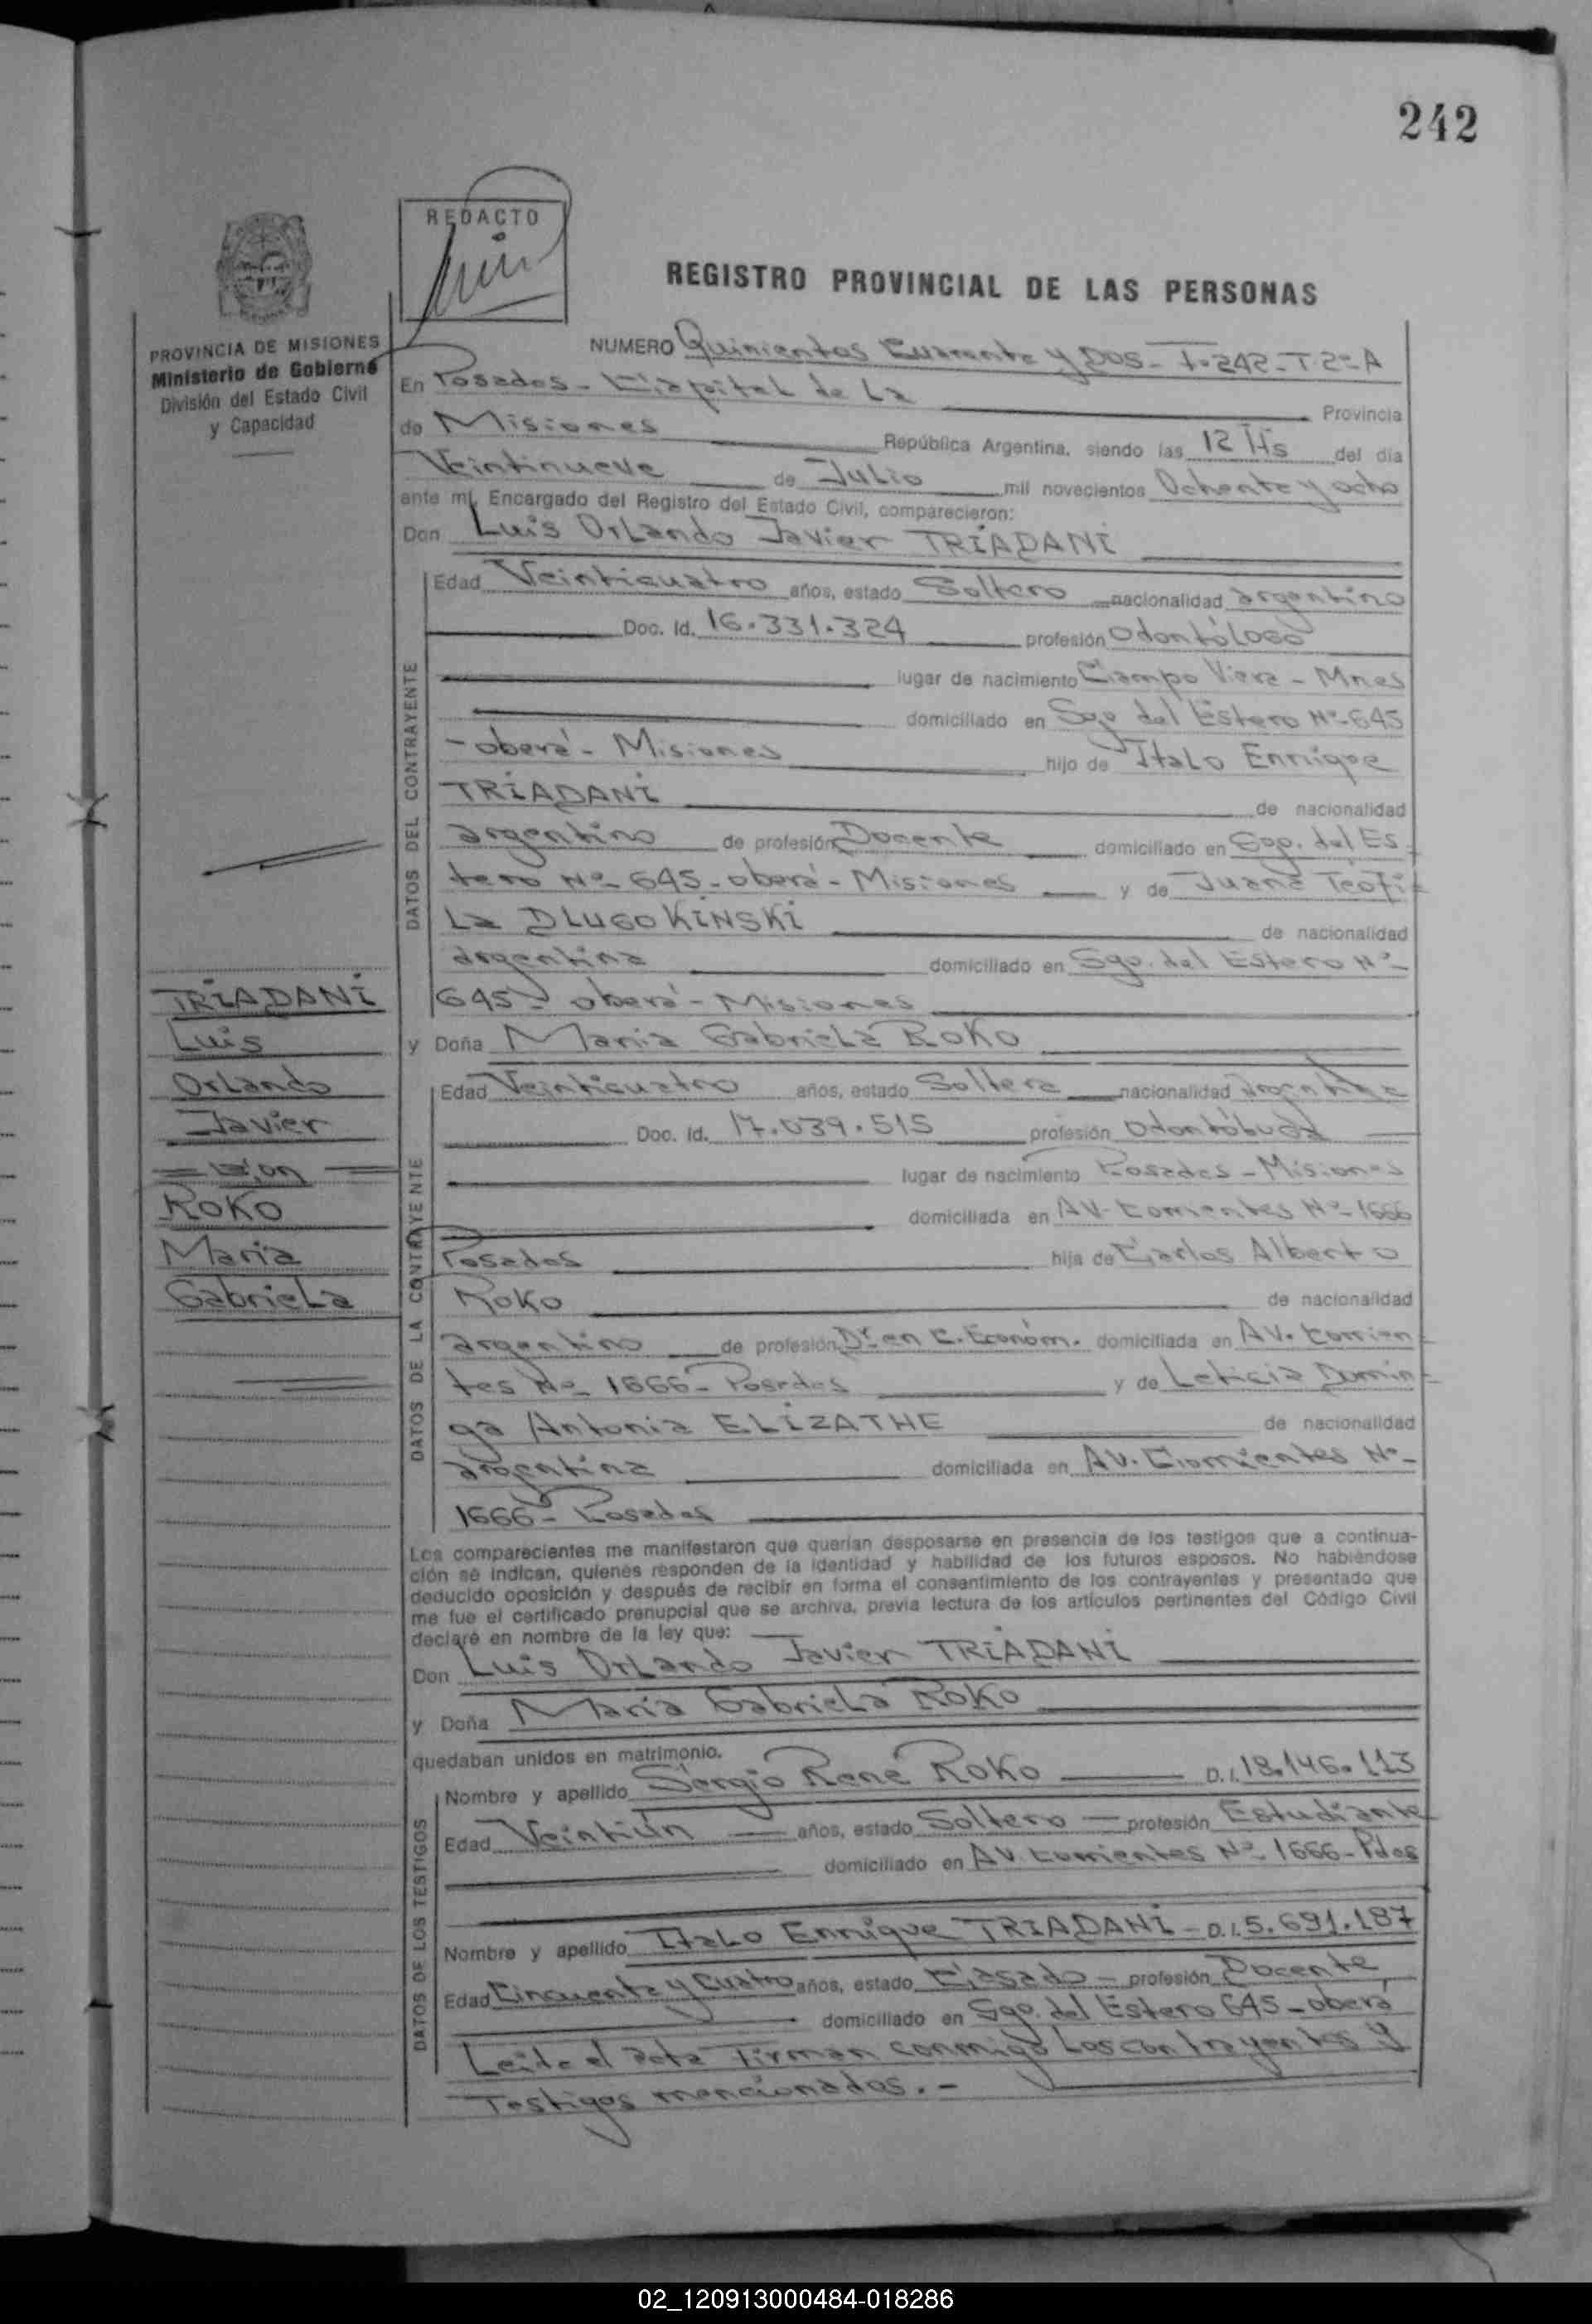 242
REDACTO
REGISTRO PROVINCIAL DE LAS PERSONAS
PROVINCIA DE MISIONES
Ministerio de Gobierno
División del Estado Civil
y Capacidad
NUMERO Quinientos Cuarenta y Dos - F-242 - T-2º-A
En Posadas - Capital de La Provincia
de Misiones República Argentina, siendo las 12 Hs del día
Veintinueve de Julio mil novecientos Ochenta y ocho
ante mí, Encargado del Registro del Estado Civil, comparecieron:
Don Luis Orlando Javier TRIADANI
DATOS DEL CONTRAYENTE
Edad Veinticuatro años, estado Soltero nacionalidad argentino
Doc. Id. 16.331.324 profesión Odontólogo
lugar de nacimiento Campo Viera - Mnes
domiciliado en Sgo del Estero Nº-645
- oberá - Misiones hijo de Italo Enrrique
TRIADANI de nacionalidad
argentino de profesión Docente domiciliado en Sgo. del Es-
tero Nº- 645 - oberá - Misiones y de Juana Teofi-
La DLUGOKINSKI de nacionalidad
argentina domiciliado en Sgo. del Estero Nº-
645 - oberá - Misiones
y Doña Maria Gabriela ROKO
DATOS DE LA CONTRAYENTE
Edad Veinticuatro años, estado Soltera nacionalidad argentina
Doc. Id. 17.039.515 profesión Odontóloga
lugar de nacimiento Posadas - Misiones
domiciliada en AV- Corrientes Nº- 1666
Posadas hija de Carlos Alberto
Roko de nacionalidad
argentino de profesión Dr. en C. Económ. domiciliada en AV. Corrien-
tes Nº- 1666 - Posadas y de Leticia Domin-
ga Antonia ELIZATHE de nacionalidad
argentina domiciliada en AV. Corrientes Nº-
1666 - Posadas
TRIADANI
Luis
Orlando
Javier
= con =
ROKO
Maria
Gabriela
Los comparecientes me manifestaron que querían desposarse en presencia de los testigos que a continua-
ción se indican, quienes responden de la identidad y habilidad de los futuros esposos. No habiéndose
deducido oposición y después de recibir en forma el consentimiento de los contrayentes y presentado que
me fue el certificado prenupcial que se archiva, previa lectura de los artículos pertinentes del Código Civil
declaré en nombre de la ley que:
Don Luis Orlando Javier TRIADANI
y Doña Maria Gabriela ROKO
quedaban unidos en matrimonio.
DATOS DE LOS TESTIGOS
Nombre y apellido Sergio René ROKO D.I. 18.146.113
Edad Veintiún años, estado Soltero profesión Estudiante
domiciliado en AV. Corrientes Nº- 1666 - Pdas
Nombre y apellido Italo Enrrique TRIADANI - D.I. 5.691.187
Edad Cincuenta y Cuatro años, estado Casado profesión Docente
domiciliado en Sgo. del Estero 645 - oberá
Leida el acta Firman conmigo Los contrayentes y
Testigos mencionados. -
02_120913000484-018286